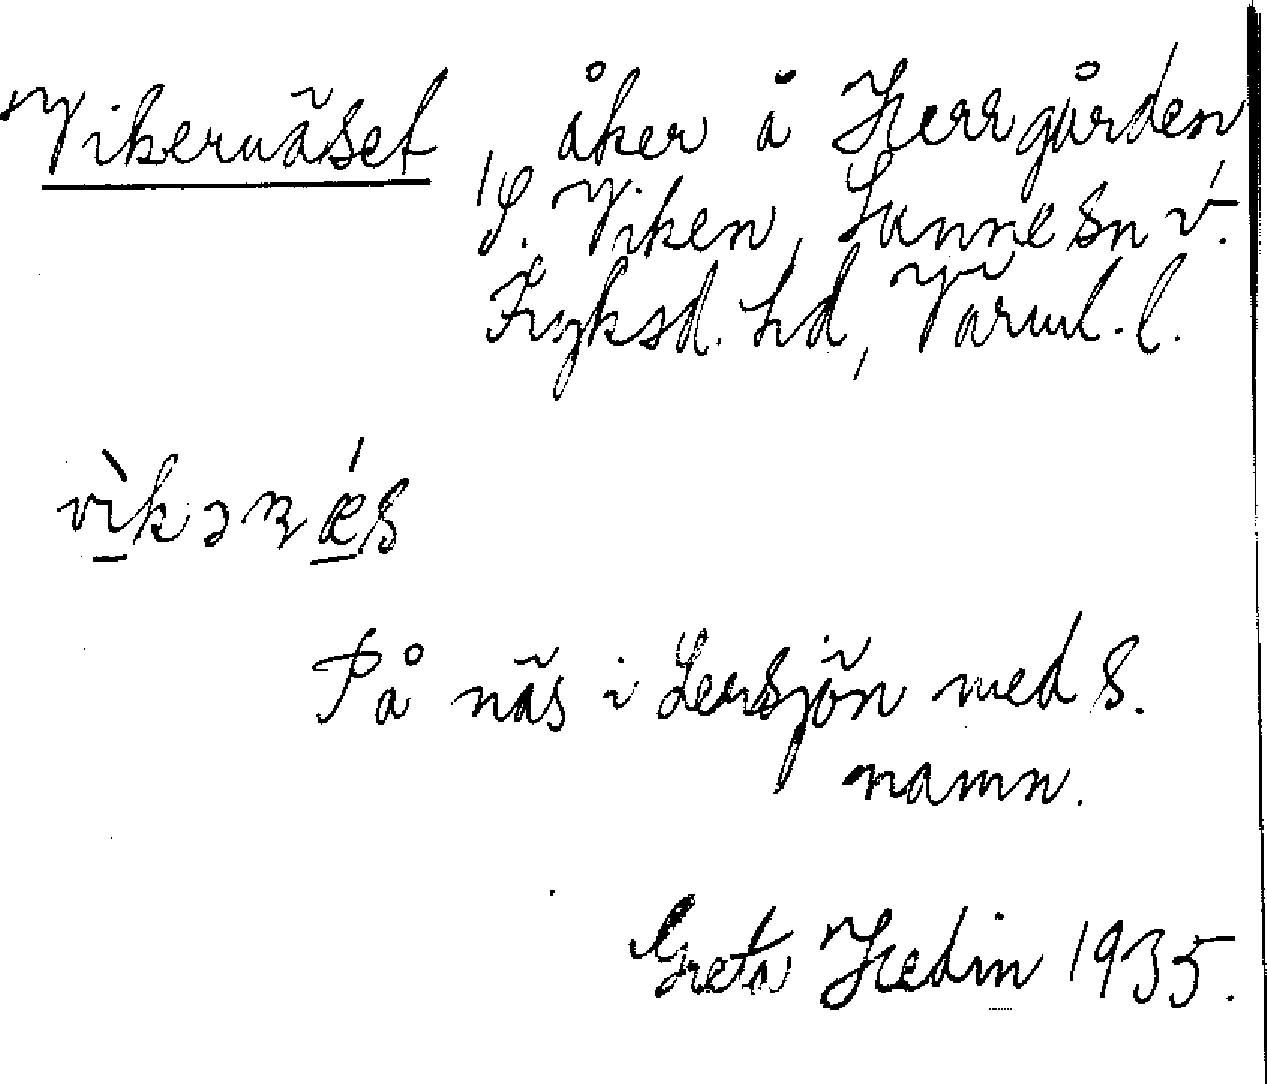 Vikernäset, åker å Herrgården
1/8. Viken, Sunne sn v.
Fryksd. hd, Värml. l.
vìkəɳǽs
På näs i Lersjön med s.
namn.
Greta Hedin 1935.